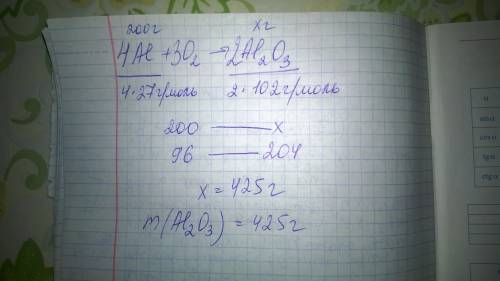 200г хг
4Al + 3O₂ → 2Al₂O₃
4·27г/моль 2·102г/моль
200 — x
96 — 204
x = 425г
m(Al₂O₃) = 425г